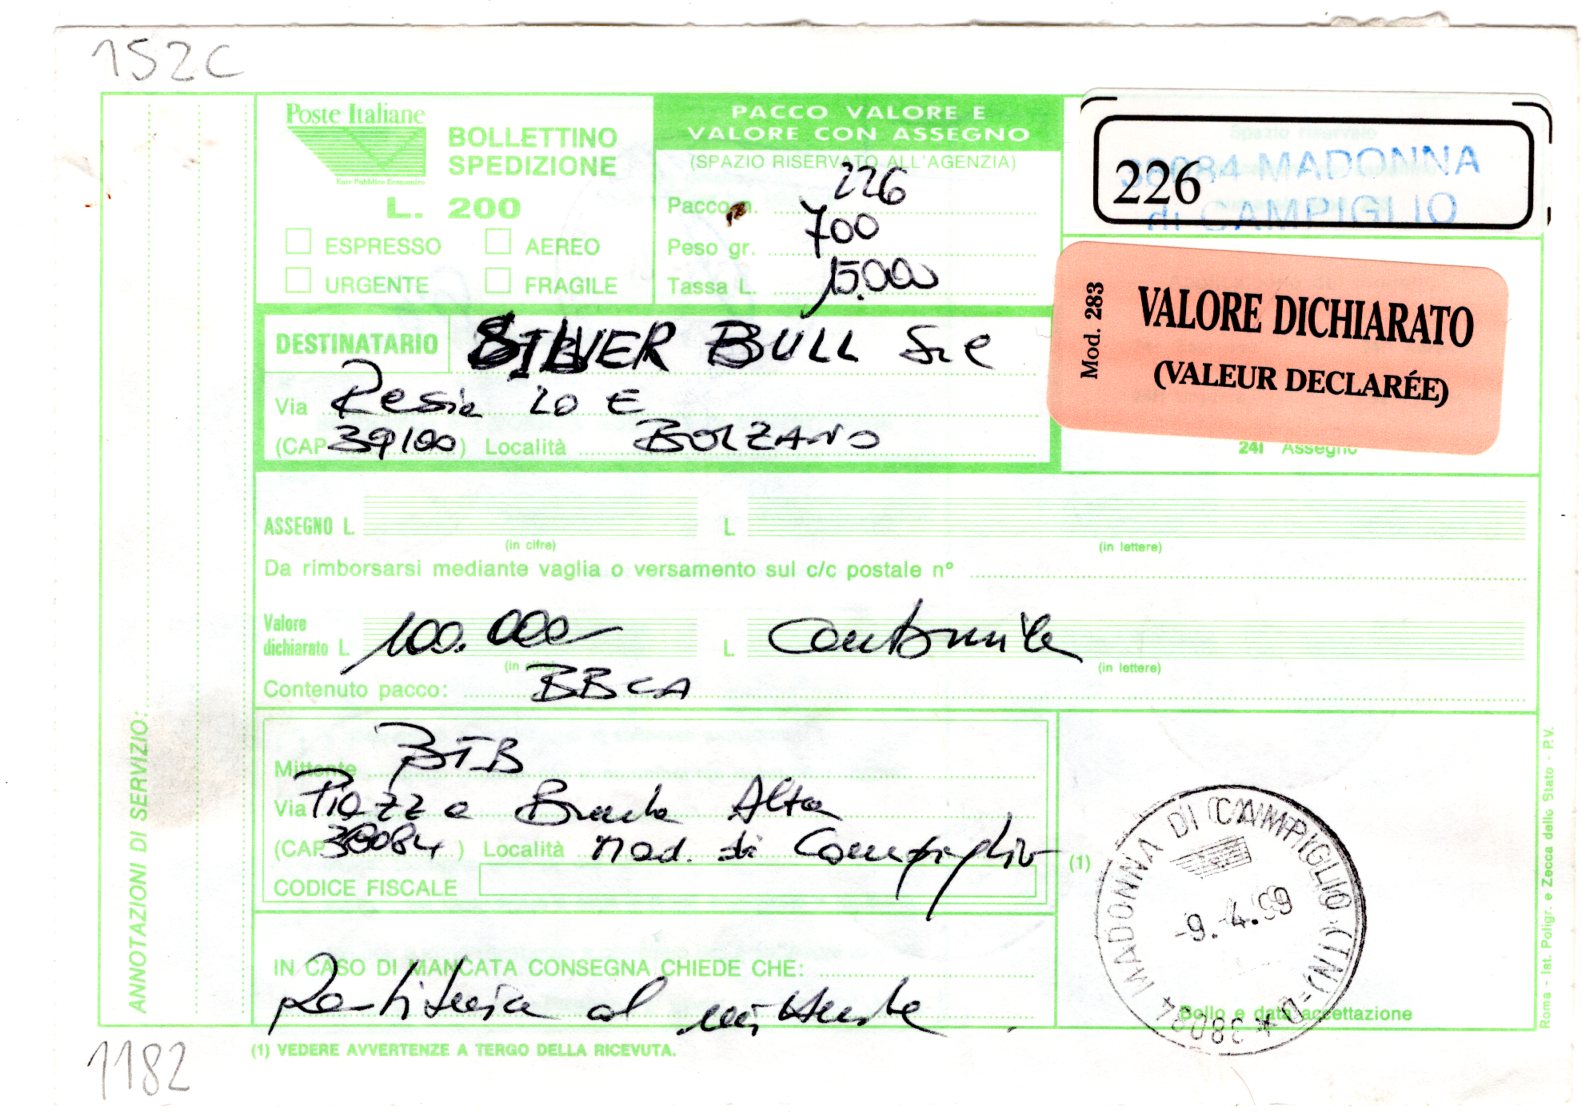 152C
Poste Italiane
Ente Pubblico Economico
BOLLETTINO
SPEDIZIONE
L. 200
ESPRESSO AEREO
URGENTE FRAGILE
PACCO VALORE E
VALORE CON ASSEGNO
(SPAZIO RISERVATO ALL'AGENZIA)
Pacco n. 226
Peso gr. 700
Tassa L. 15.000
Spazio riservato
38084 MADONNA
di CAMPIGLIO
226
Mod. 283
VALORE DICHIARATO
(VALEUR DECLARÉE)
24I Assegno
DESTINATARIO SILVER BULL Srl
Via Resia 20 E
(CAP 39100) Località BOLZANO
ASSEGNO L. L.
(in cifre) (in lettere)
Da rimborsarsi mediante vaglia o versamento sul c/c postale n°
Valore
dichiarato L. 100.000 L. Centomila
(in cifre) (in lettere)
Contenuto pacco: BBCA
Mittente BTB
Via Piazza Brenta Alta
(CAP 38084) Località Mad. di Campiglio
CODICE FISCALE
(1)
IN CASO DI MANCATA CONSEGNA CHIEDE CHE:
Restituzia al mittente.
MADONNA DI CAMPIGLIO (TN)-D * 38084
-9.4.99
Bollo e data accettazione
(1) VEDERE AVVERTENZE A TERGO DELLA RICEVUTA.
ANNOTAZIONI DI SERVIZIO:
Roma - Ist. Poligr. e Zecca dello Stato - P.V.
1182